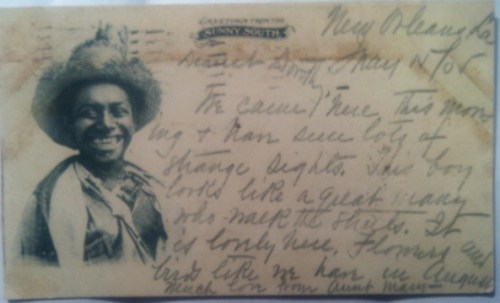 GREETINGS FROM THE
SUNNY SOUTH.
New Orleans La
May 4/05
Dearest Dorothy
We came here this morn
ing & have seen lots of
strange sights. This boy
looks like a great many
who walk the streets. It
is lovely here. Flowers and
birds like we have in August
Much love from Aunt Mary